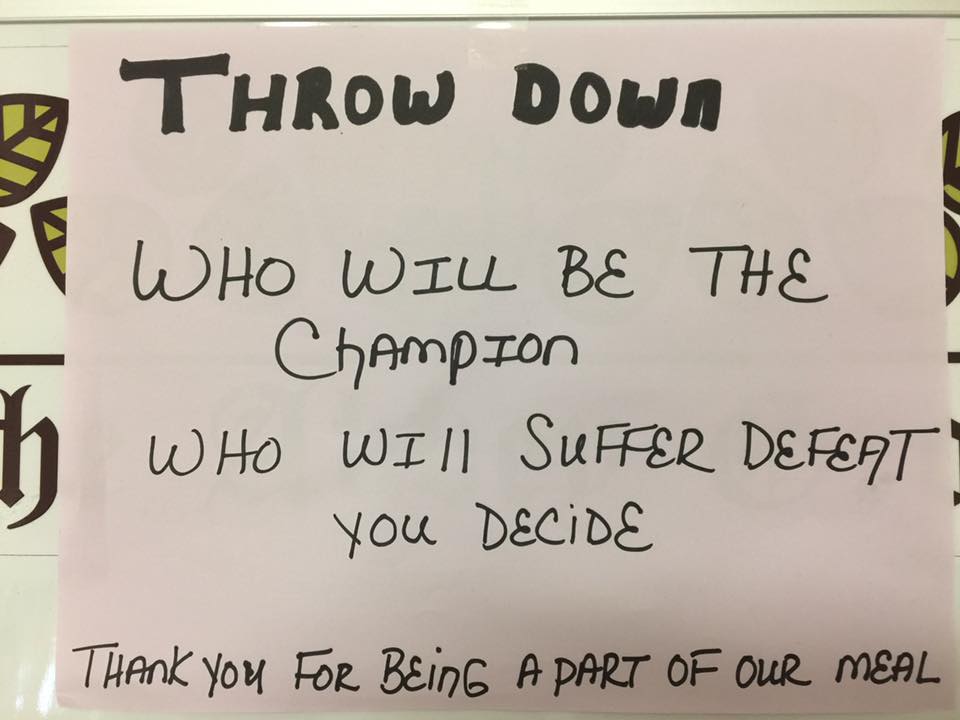 THROW DOWN
WHO WILL BE THE
ChAMPION
WHO WIll SUFFER DEFEAT
YOU DECiDE
THANK YOU FOR BEING A PART OF OUR MEAL
h